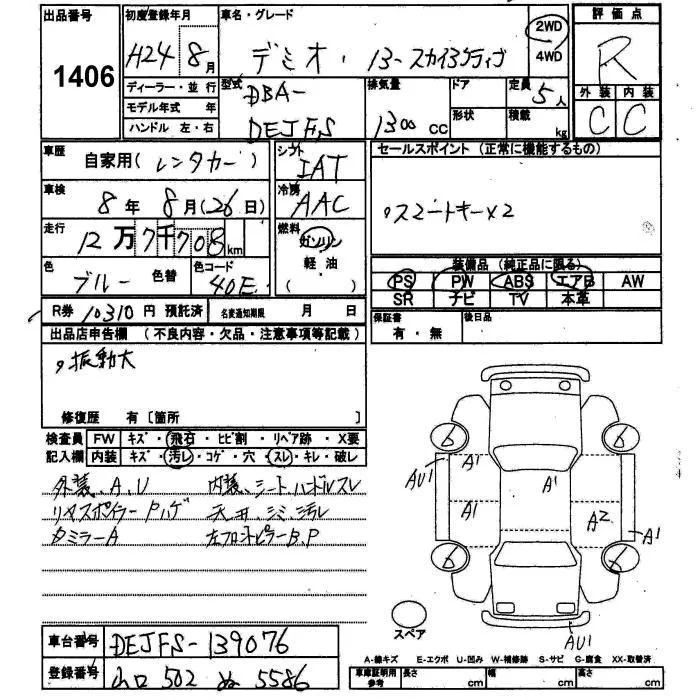 出品番号 1406
初度登録年月 H24 8月
車名・グレード デミオ・13-スカイアクティブ
2WD
4WD
評価点 R
外装 内装
C C
ディーラー・並行
モデル年式 年
ハンドル 左・右
型式 DBA-
DEJFS
排気量 1300 cc
ドア
形状
定員 5人
積載 kg
車歴 自家用(レンタカー)
シフト IAT
セールスポイント (正常に機能するもの)
車検 8年 8月(26日)
冷房 AAC
・スマートキー×2
走行 12万7千708km
燃料 ガソリン
軽油
( )
色 ブルー 色替 色コード 40E
装備品 (純正品に限る)
PS PW ABS エアB AW
SR ナビ TV 本革
R券 10310円 預託済 名変通知期限 月 日
保証書 有・無
後日品
出品店申告欄 (不良内容・欠品・注意事項等記載)
・振動大
修復歴 有 [箇所 ]
検査員 FW キズ・飛石・ヒビ割・リペア跡・X要
記入欄 内装 キズ・汚レ・コゲ・穴・スレ・キレ・破レ
外装、A、U 内装、シート、ハンドルスレ
リヤスポイラーPハゲ 天井、シミ、汚レ
タミラーA 左フロントピラーB.P
6 6
AU1 A1 A1
A1 A2 A1
6 6
スペア
AU1
車台番号 DEJFS-139076
登録番号 山口 502 ぬ 5586
A-線キズ E-エクボ U-凹み W-補修跡 S-サビ G-腐食 XX-取替済
車庫証明用参考 長さ cm 幅 cm 高さ cm